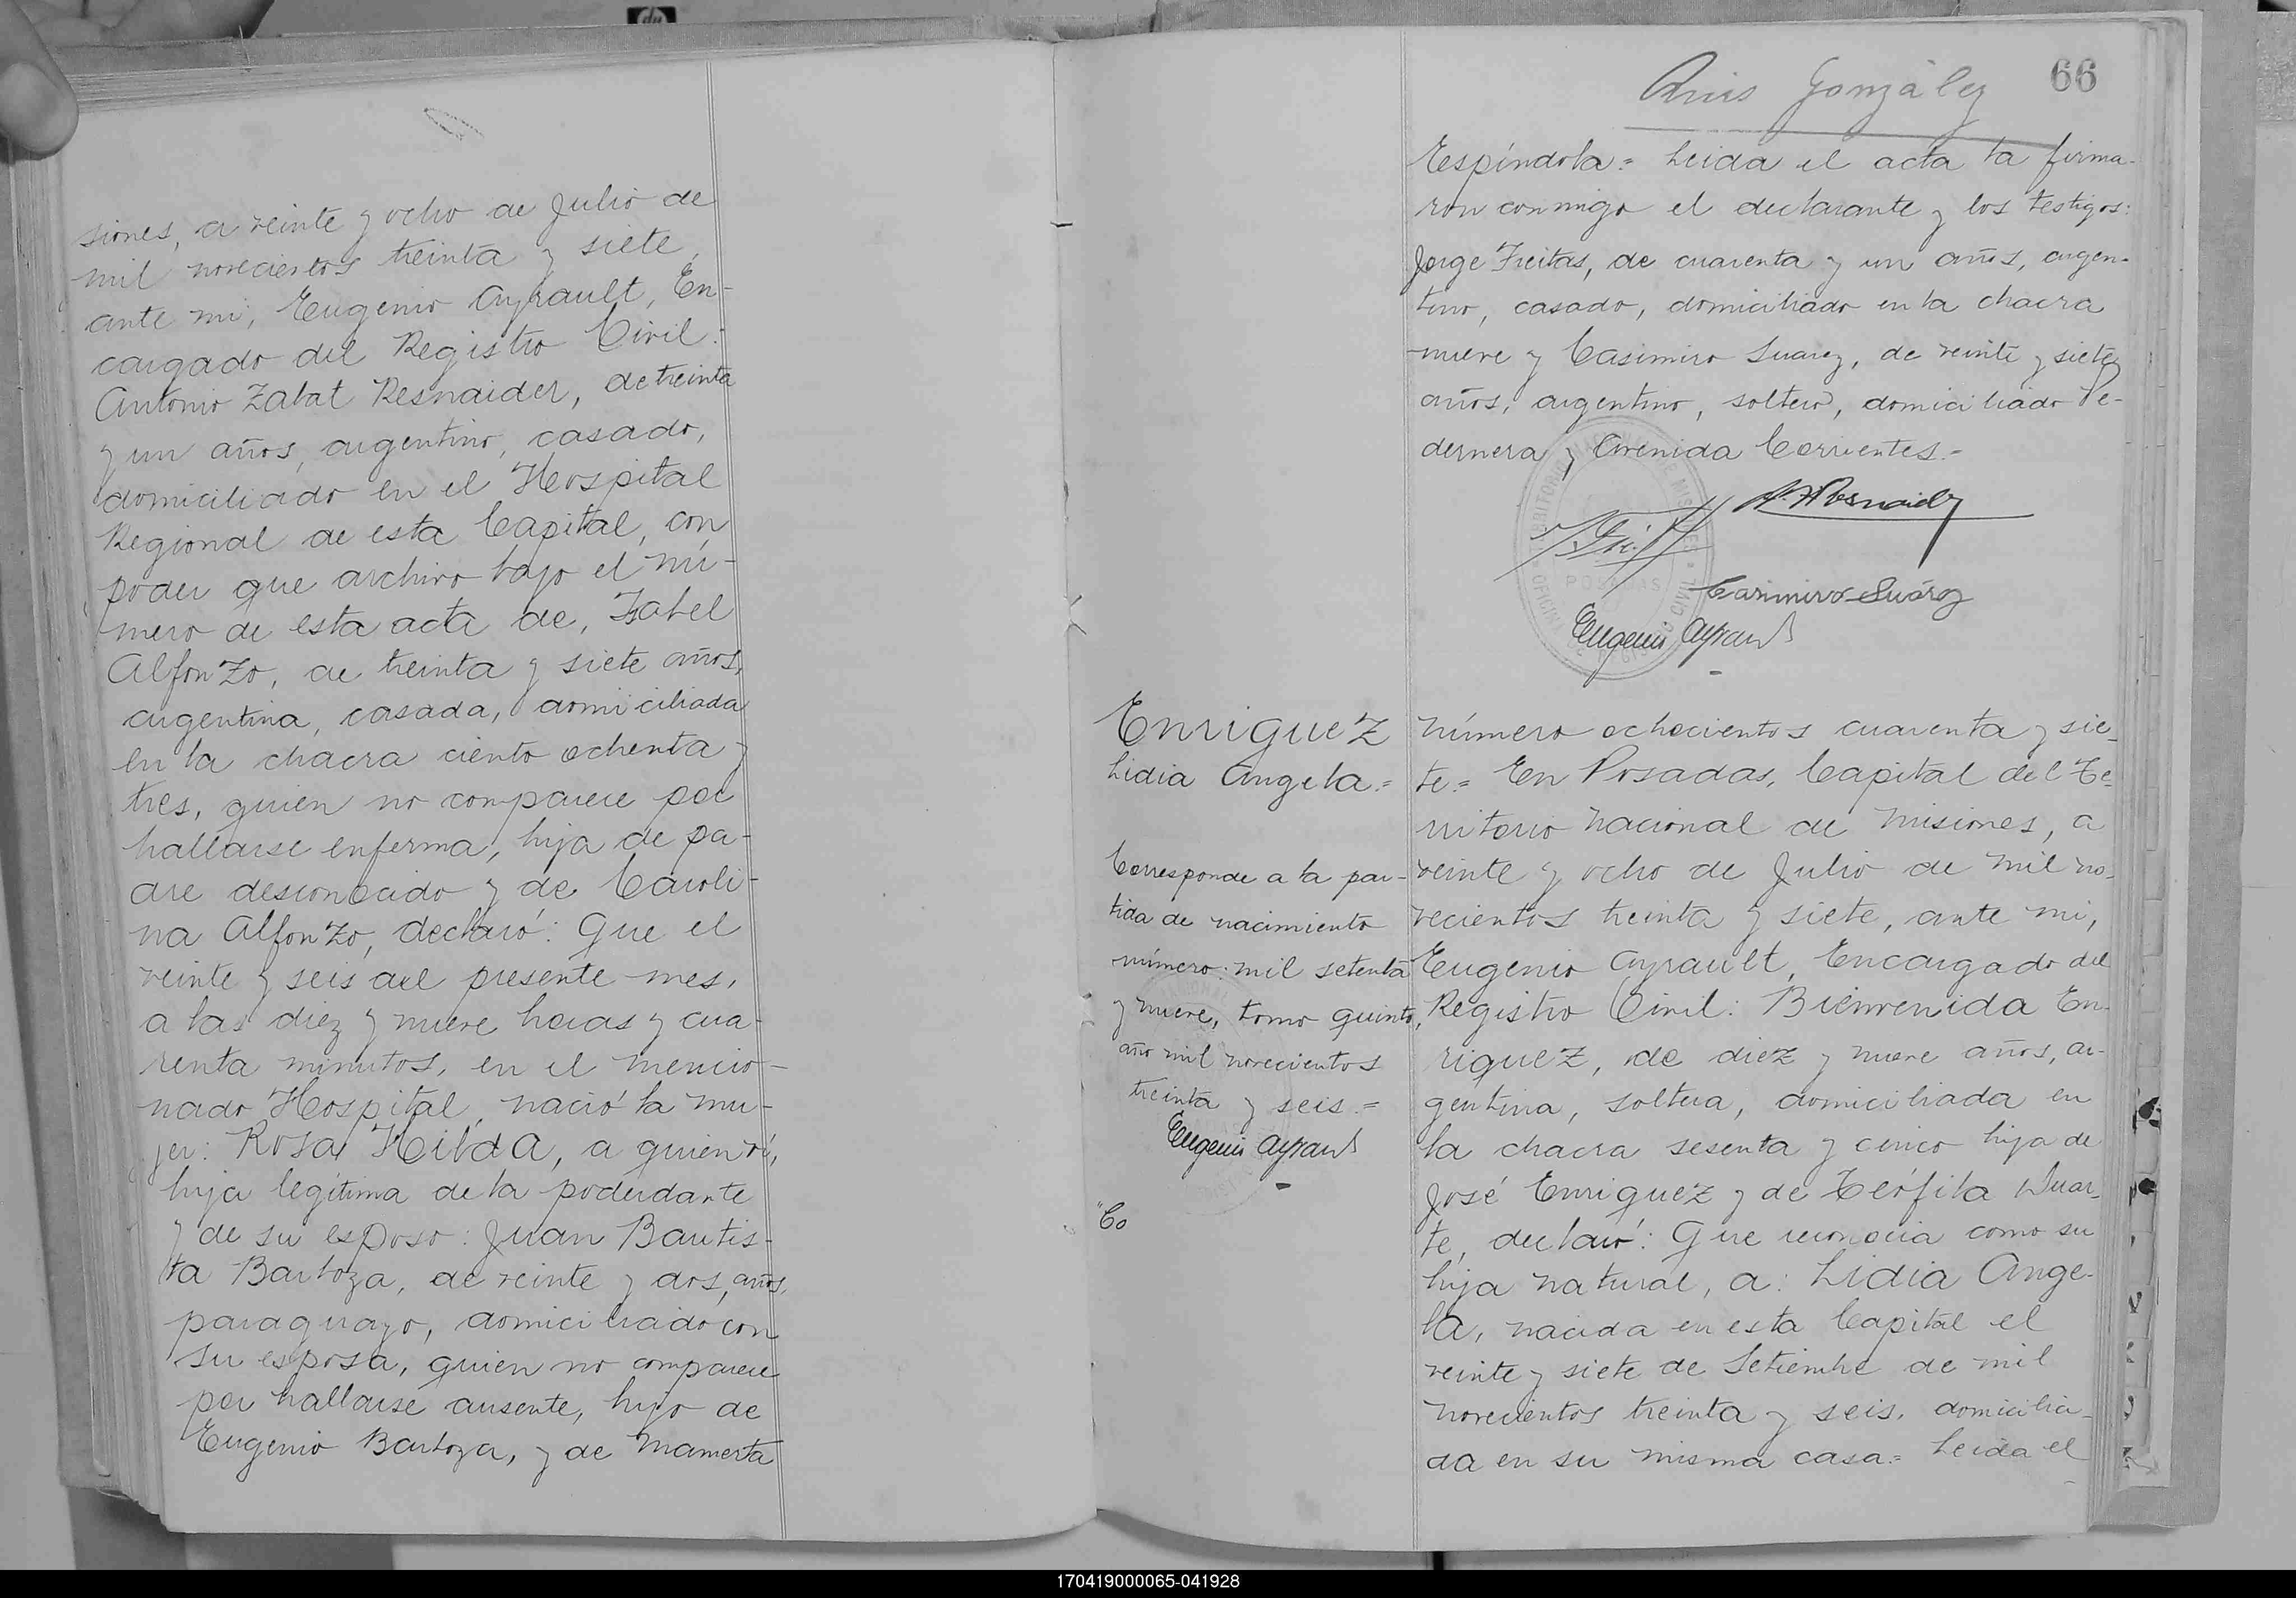 siones, a veinte y ocho de Julio de
mil novecientos treinta y siete,
ante mi, Eugenio Ayrault, En-
cargado del Registro Civil:
Antonio Zabat Resnaider, de treinta
y un años, argentino, casado,
domiciliado en el Hospital
Regional de esta Capital, con
poder que archivo bajo el nú-
mero de esta acta de, Isabel
AlfonZo, de treinta y siete años,
argentina, casada, domiciliada
en la chacra ciento ochenta y
tres, quien no comparece por
hallarse enferma, hija de pa-
dre desconocido y de Caroli-
na AlfonZo, declaró: Que el
veinte y seis del presente mes,
a las diez y nueve horas y cua-
renta minutos, en el mencio-
nado Hospital, nació la mu-
jer: Rosa Hilda, a quien ví,
hija legítima de la poderdante
y de su esposo: Juan Bautis-
ta Barboza, de veinte y dos, años,
paraguayo, domiciliado con
su esposa, quien no comparece
por hallarse ausente, hijo de
Eugenio Barboza, y de Mamerta
González 66
Espíndola = Leida el acta la firma-
ron conmigo el declarante y los testigos:
Jorge Freitas, de cuarenta y un años, argen-
tino, casado, domiciliado en la chacra
nueve y Casimiro Suarez, de veinte y siete
años, argentino, soltero, domiciliado Pe-
dernera y Avenida Corrientes.=
Casimiro Suárez
Eugenio Ayrault
EnriqueZ
Lidia Angela.=
Corresponde a la par-
tida de nacimiento
número: mil setenta
y nueve, tomo quinto,
año mil novecientos
treinta y seis.=
Eugenio Ayrault
Co
Número ochocientos cuarenta y sie-
te.= En Posadas, Capital del Te-
rritorio Nacional de Misiones, a
veinte y ocho de Julio de mil no-
vecientos treinta y siete, ante mi,
Eugenio Ayrault, Encargado del
Registro Civil: Bienvenida En-
riqueZ, de diez y nueve años, ar-
gentina, soltera, domiciliada en
la chacra sesenta y cinco hija de
José EnriqueZ y de Teófila Duar-
te, declaró: Que reconocia como su
hija natural, a: Lidia Ange-
la, nacida en esta Capital el
veinte y siete de Setiembre de mil
novecientos treinta y seis, domicilia-
da en su misma casa.= Leida el
170419000065-041928